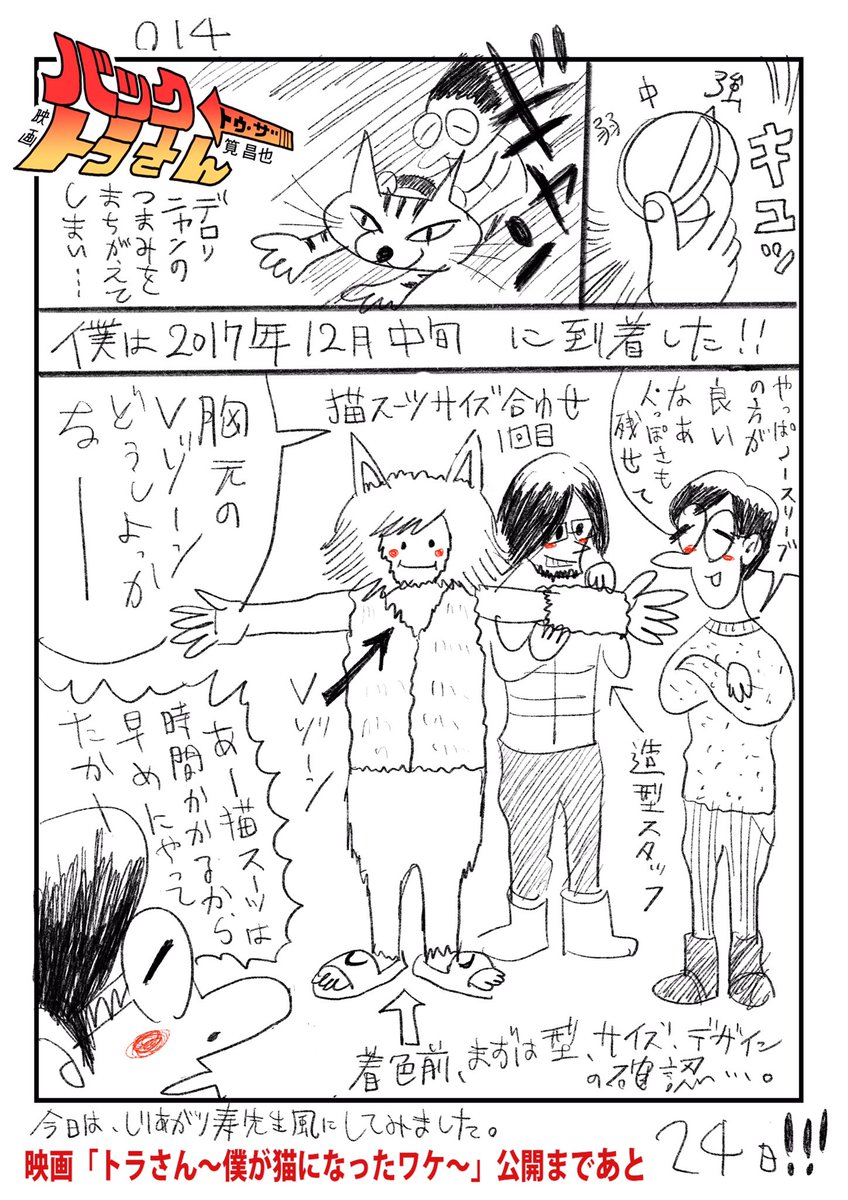 014
映画
バック
トゥ・ザ
トラさん
筧昌也
強
中
弱
キュッ
ギャン
デロリ
ニャンの
つまみを
まちがえて
しまい…
僕は2017年12月中旬 に到着した!!
やっぱノースリーブ
の方が
良い
なあ
人っぽさも
残せて
猫スーツサイズ合わせ
1回目
胸元の
Vゾーン
どうしよっか
なー
Vゾーン
造型スタッフ
あー猫スーツは
時間かかるから
早めにやって
たかー
着色前、まずは型、サイズ、デザイン
の確認…。
今日は、しりあがり寿先生風にしてみました。
映画「トラさん～僕が猫になったワケ～」公開まであと
24日!!!